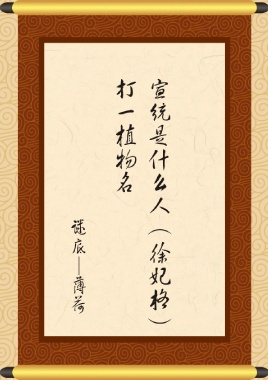 宣统是什么人（徐妃格）
打一植物名
谜底—薄荷